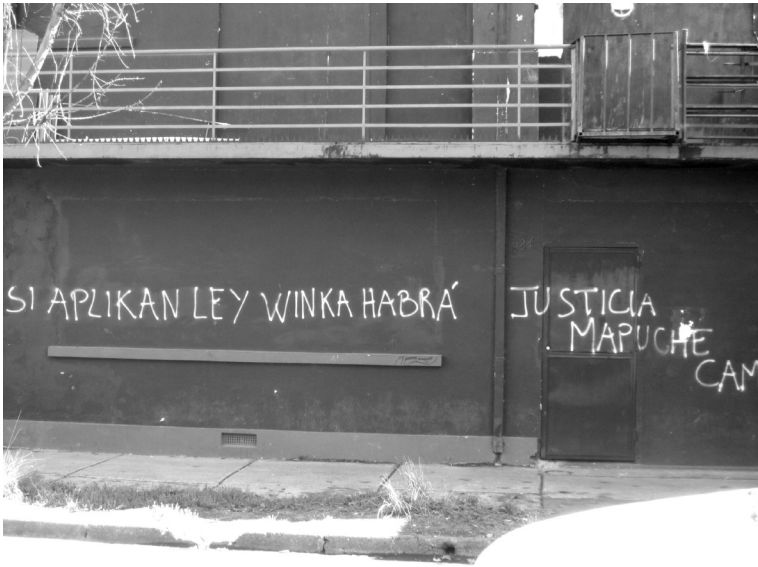 SI APLIKAN LEY WINKA HABRÁ JUSTICIA
MAPUCHE
CAM